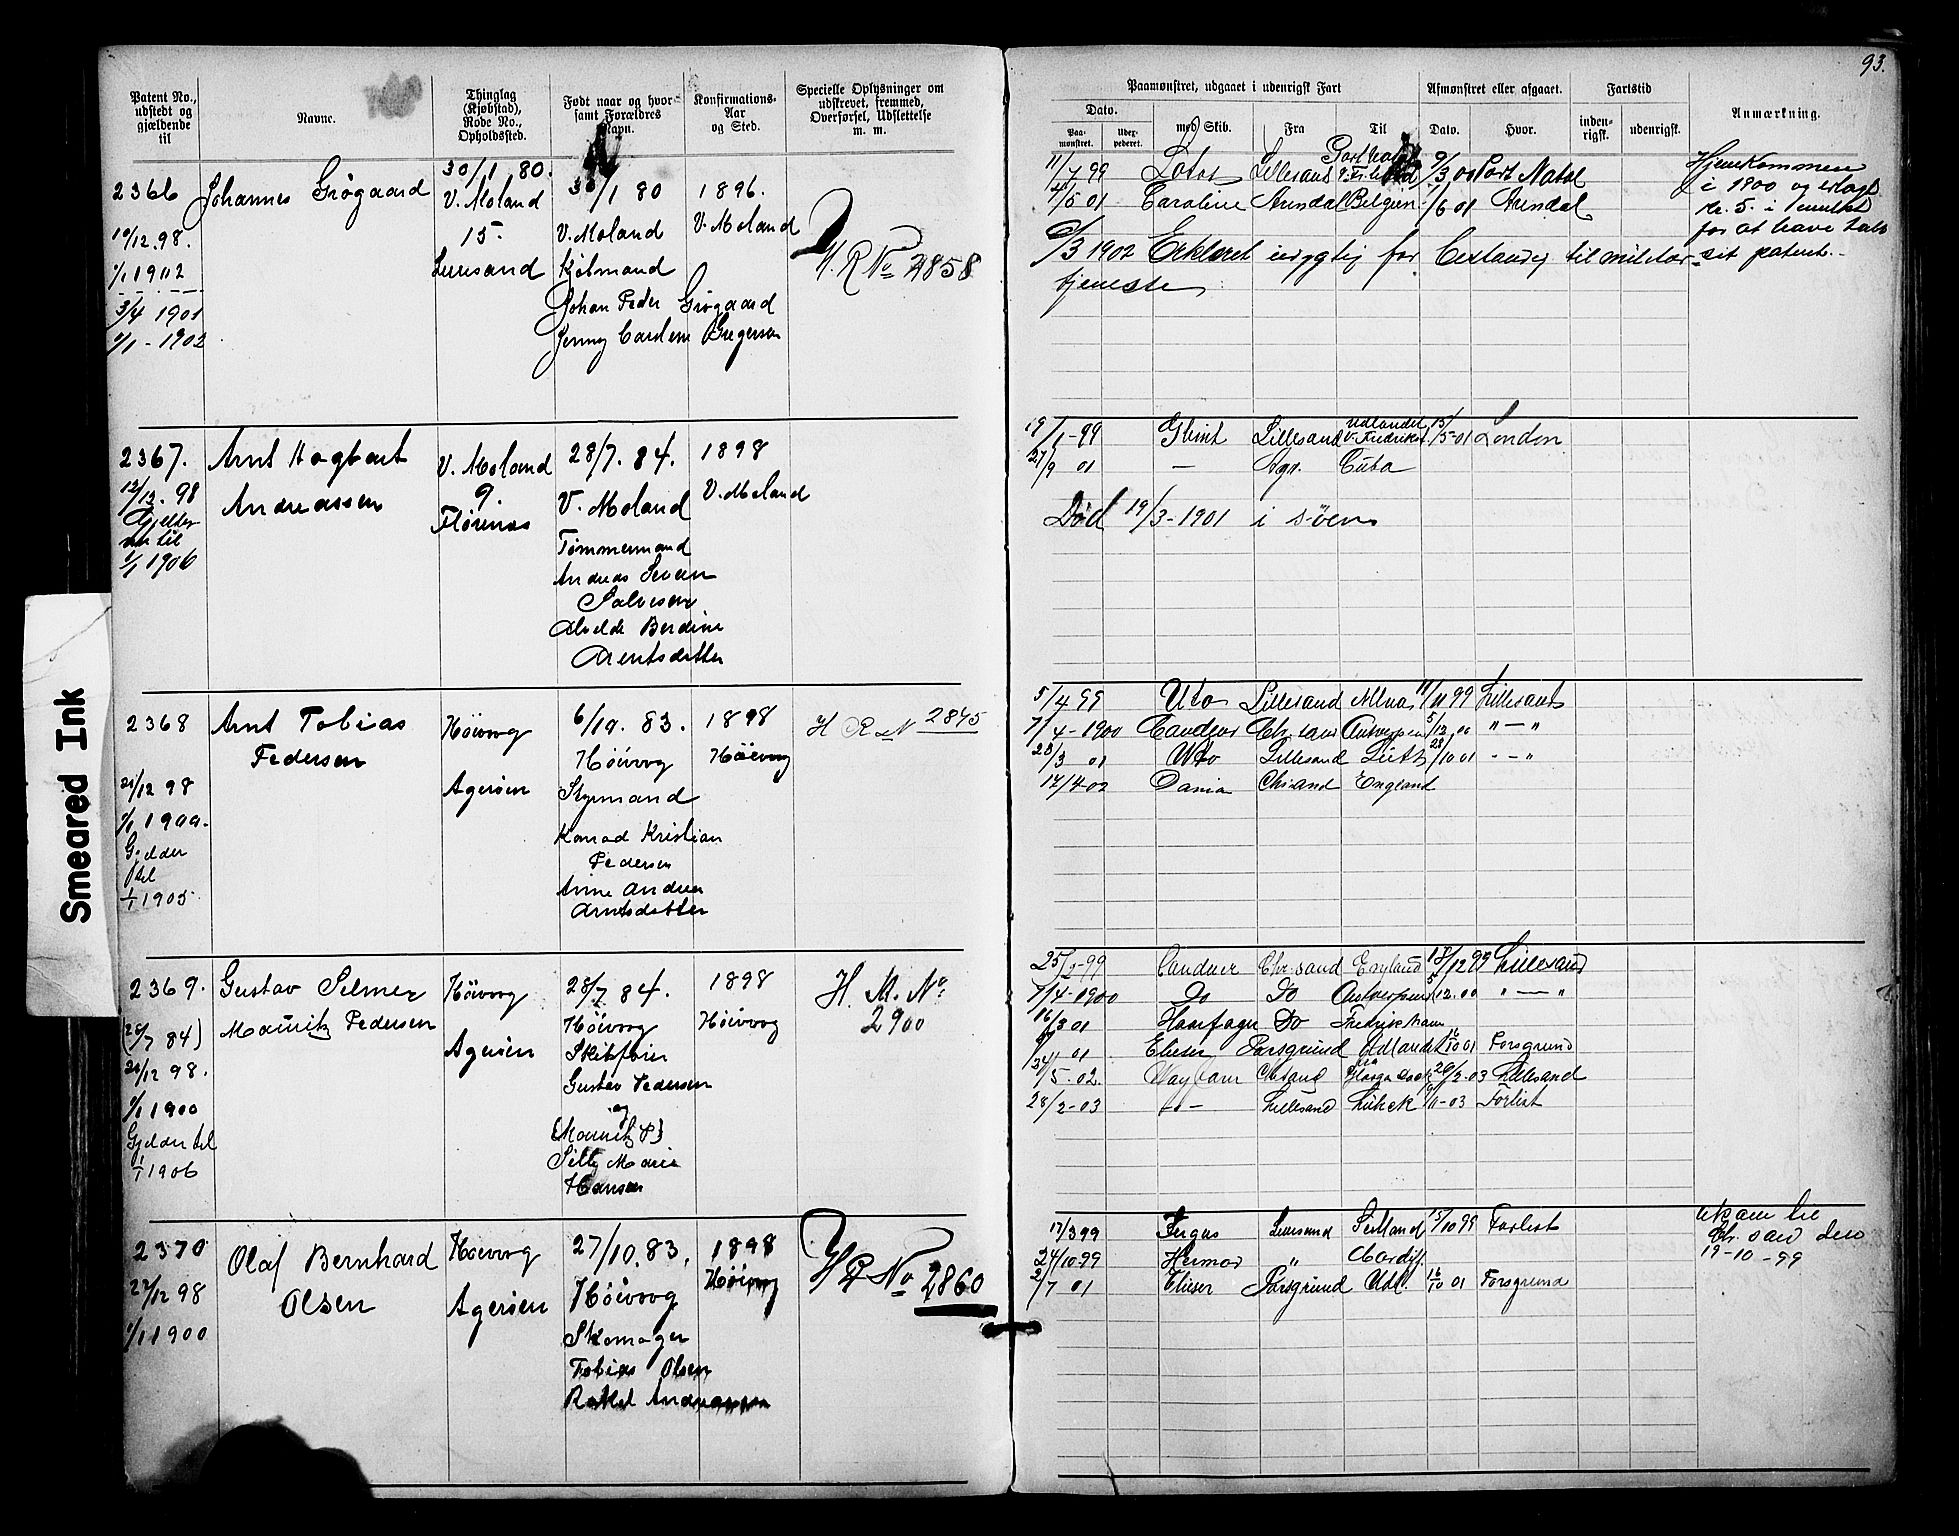 93.
Patent No., udstedt og gjældende til
Navne.
Thinglag (Kjøbstad), Rode No., Opholdssted.
Født naar og hvor samt Forældres Navn.
Konfirmations-Aar og Sted.
Specielle Oplysninger om udskrevet, fremmed, Overførsel, Udslettelse m. m.
Paamønstret, udgaaet i udenrigsk Fart
Dato.
Paamønstret.
Uderpederet.
med Skib.
Fra
Til
Afmønstret eller afgaaet.
Dato.
Hvor.
Fartstid
indenrigsk.
udenrigsk.
Anmærkning.
2366
19/12.98.
1/1 1902
3/4 1901
1/1 - 1902
Johannes Grøgaard
30/1 80.
V. Moland
15.
Lillesand
30/1 80
V. Moland
Kjøbmand
Johan Peder Grøgaard
Jenny Cardine Gregersen
1896.
V. Moland
H. R No 2858
11/7 99 Lillesand 9/3 00 Port Natal
4/5 01 Caroline Arendal Belgien 1/6 01 Arendal
6/3 1902 Erklæret udygtig for bestandig til militær
tjeneste
Hjemkommen
i 1900 og erlagt
Kr. 5. i mulkt
for at have tabt
sit patent.
2367.
12/12. 98
Gjelder
til
1/1 1906
Arnt Hagbart
Andreassen
V. Moland
9.
Flørenæs
28/7. 84.
V. Moland
Tømmermand
Andreas Severin
Salvesen
Alvilde Berdine
Arentsdatter
1898
V. Moland
19/1-99 Glimt Lillesand Udlandet v. Fredrikst. 15/5-01 London
27/9 01 — Cuba
Død 19/3-1901 i søen
2368
21/12 98
1/1 1900.
Gjelder
til
1/1 1905
Arnt Tobias
Pedersen
Høivaag
Agerøen
6/10. 83.
Høivaag
Styrmand
Konrad Kristian
Pedersen
Anne Andrea
Arntsdatter
1898
Høivaag
H R N 2845
5/4 99 Uto Lillesand 11/11 99 Lillesand
7/4-1900 Candeur Chr.sand Antverpen 5/12 00 " — "
23/3 01 Uto Lillesand Leith 28/10 01 " — "
14/4-02 Dania Chrsand England
2369.
(28/7 84)
21/12 98.
1/1 1900
Gjelder til
1/1 1906
Gustav Selmer
Mauritz Pedersen
Høivaag
Agerøen
28/7. 84.
Høivaag
Skibsfører
Gustav Pedersen
og
(Mauritz P)
Silly Marie
Hansen
1898
Høivaag
H. M. No
2900
25/2-99 Candeur Chr.sand England 18/12 99 Lillesand
7/4-1900 Do Do Antverpen 5/12.00 " — "
16/3 01 Haarfager Do
01 Elieser Porsgrund Udlandet 16/10 01 Porsgrund
24/5-02 Chrsand 20/2-03 Lillesand
28/2-03 — " — Lillesand Lübeck 9/11-03 Forlist
2370
22/12 98
1/1 1900
Olaf Bernhard
Olsen
Høivaag
Agerøen
27/10. 83.
Høivaag
Skomager
Tobias Olsen
Rakel Andreassen
1898
Høivaag
H R No 2860
17/3 99 Fergus Lillesand 15/10 99 Forlist
24/10-99 Hermod " Cardiff
2/7 01 Elieser Porsgrund Udl. 16/10 01 Porsgrund
til
Chr.sand den
19-10-99
Smeared Ink